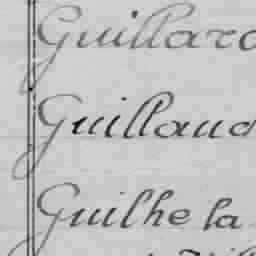 Guillard
Guillaud
Guilhe la